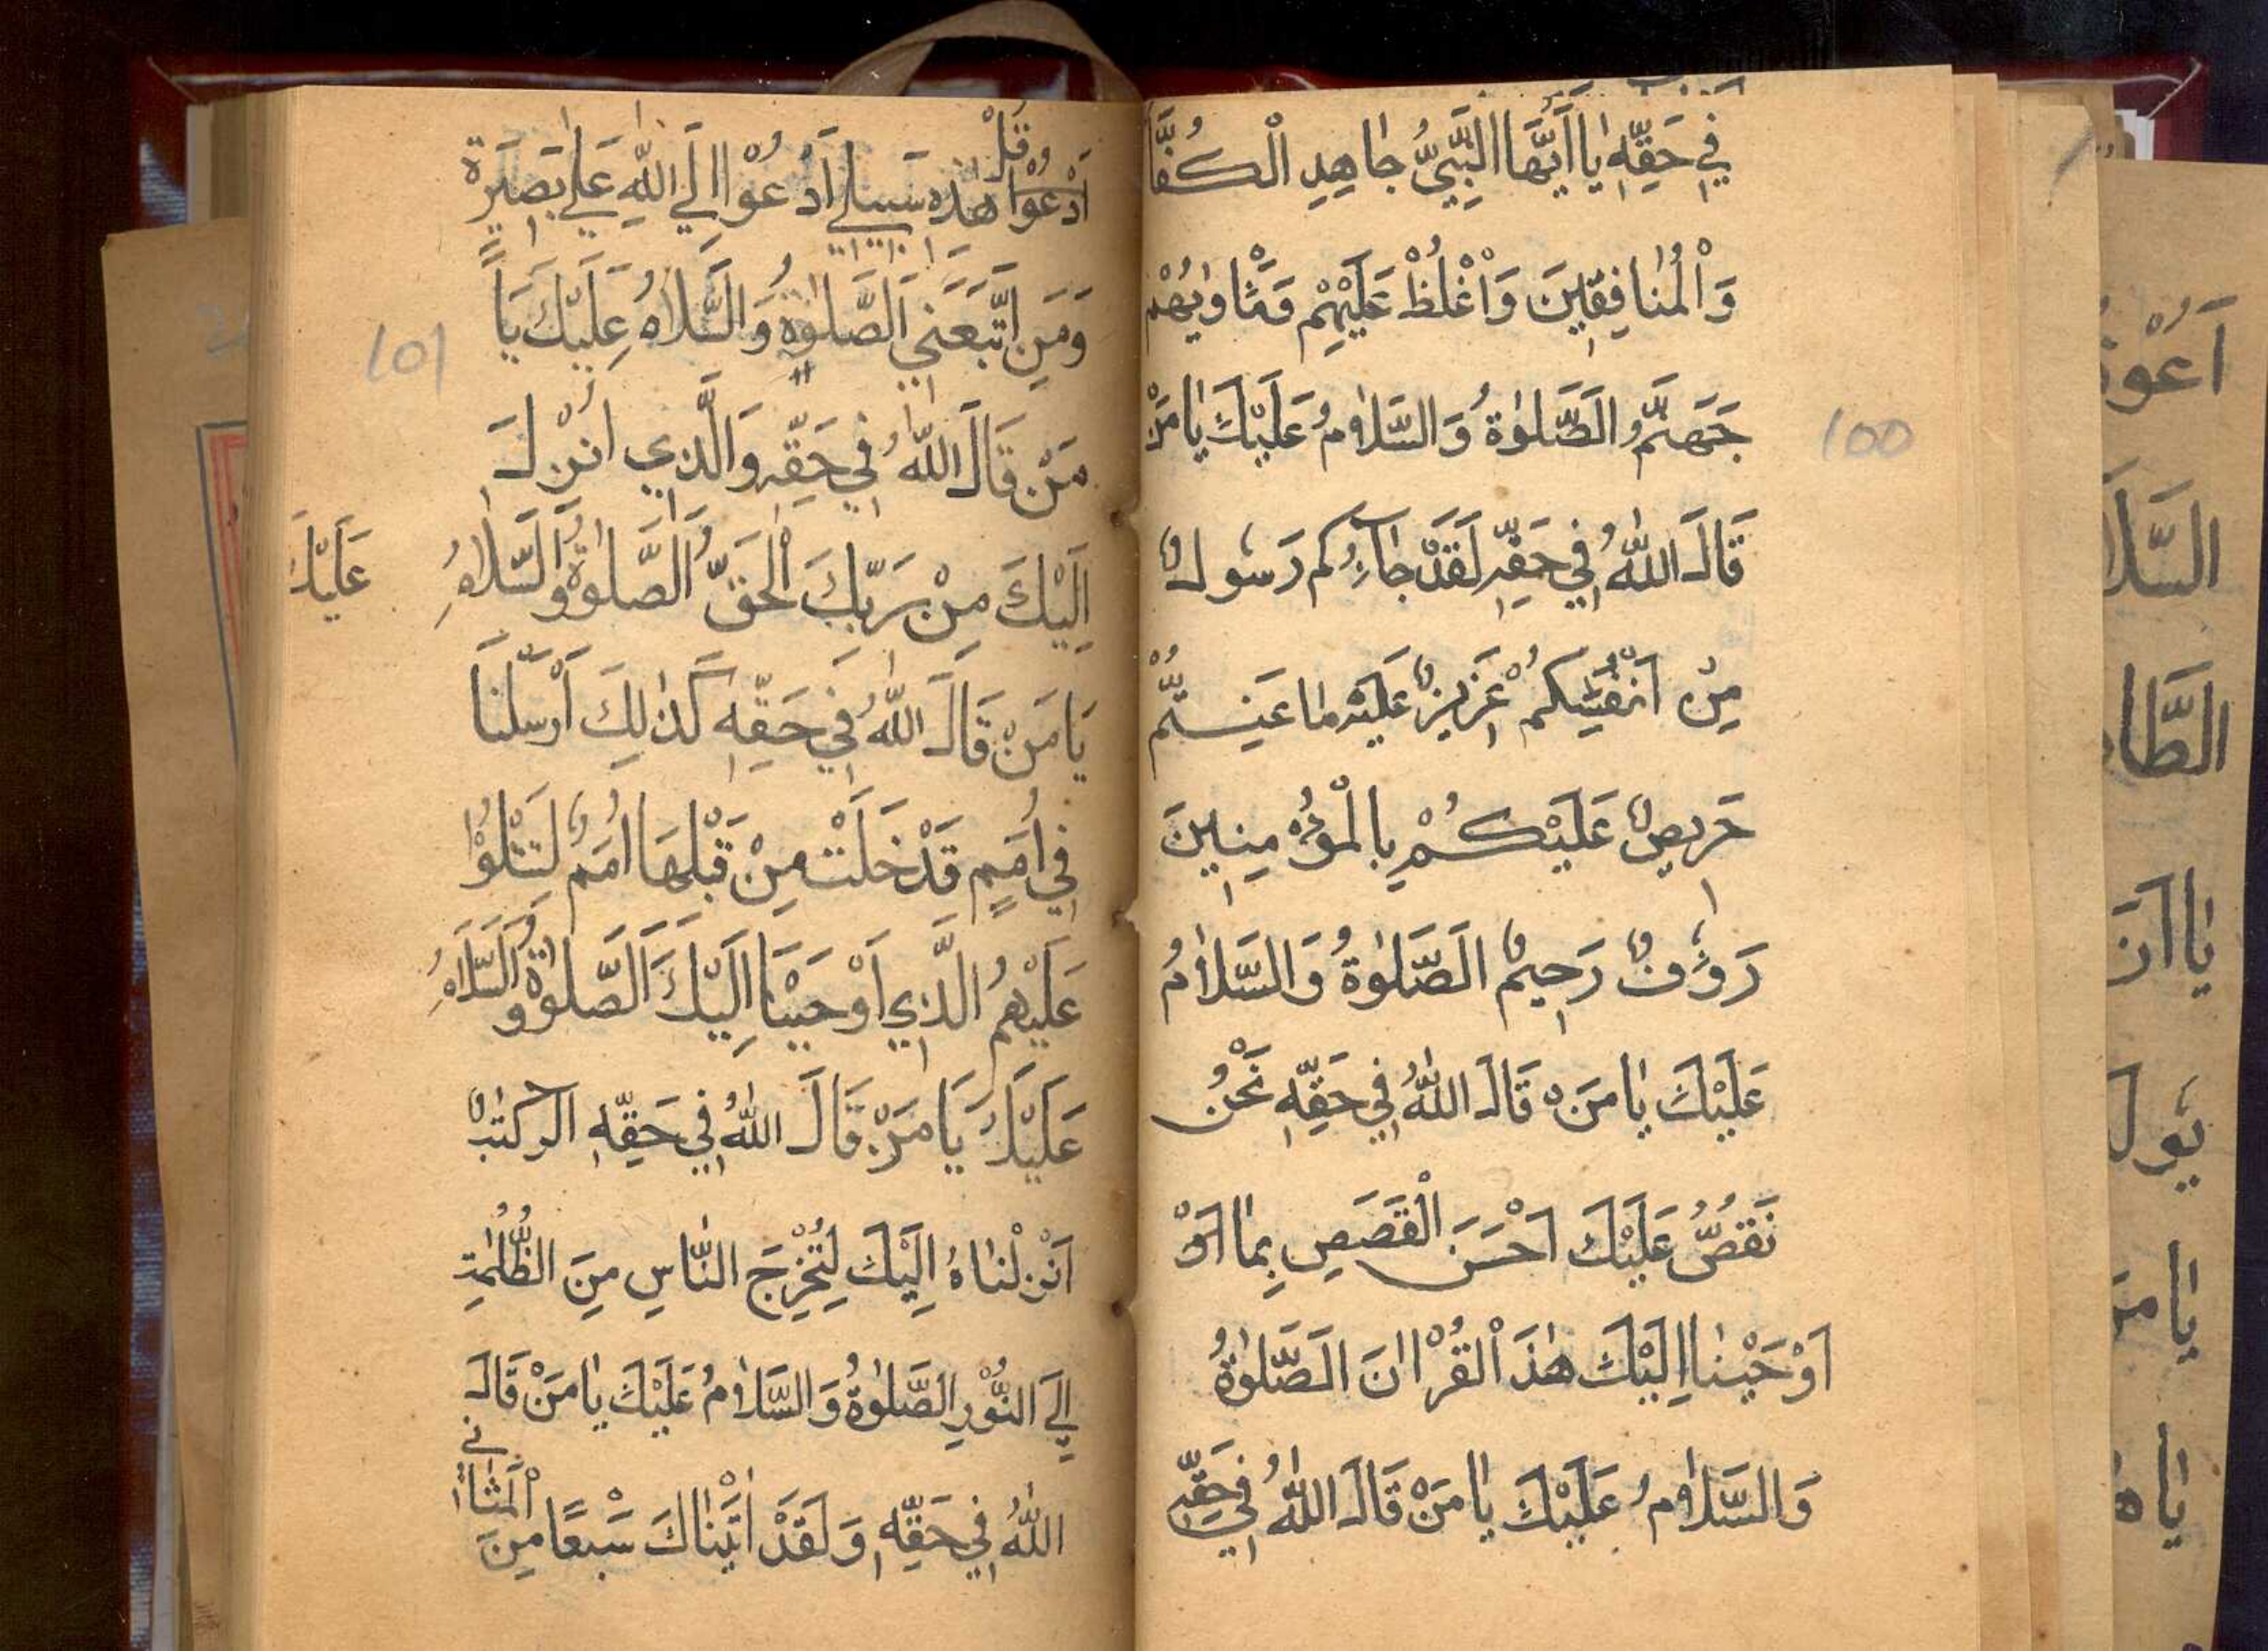 100
فِي حَقِّهِ يَا اَيُّهَا النَّبِيُّ جَاهِدِ الْكُفَّا
وَالْمُنَافِقِينَ وَاغْلُظْ عَلَيْهِمْ وَمَثْاوٰيهُمْ
جَهَنَّمُ الَصَّلٰوةُ وَالسَّلَامُ عَلَيْكَ يَا مَنْ
قَالَ اللّٰهُ فِي حَقِّهِ لَقَدْ جَاءَكُم رَسُولٌ
مِنْ اَنْفُسِكُمْ عَزِيزٌ عَلَيْهِ مَا عَنِتُّمْ
حَرِيصٌ عَلَيْكُمْ بِالْمُؤْمِنِينَ
رَؤُفٌ رَحِيمٌ الَصَّلٰوةُ وَالسَّلَامُ
عَلَيْكَ يَا مَنْ قَالَ اللّٰهُ فِي حَقِّهِ نَحْنُ
نَقُصُّ عَلَيْكَ اَحْسَنَ الْقَصَصِ بِمَا اَوْ
اَوْحَيْنَا اِلَيْكَ هٰذَ الْقُرْاٰنَ الَصَّلٰوةُ
وَالسَّلَامُ عَلَيْكَ يَا مَنْ قَالَ اللّٰهُ فِي حَقِّهِ
101
قُلْ
اَدْعُوْا هٰذِهِ سَبِيلِي اَدْعُوْا اِلَي اللّٰهِ عَلَي بَصِيرَةٍ
وَمَنِ اتَّبَعَنِي الَصَّلٰوةُ وَالسَّلَامُ عَلَيْكَ يَا
مَنْ قَالَ اللّٰهُ فِي حَقِّهِ وَالَّذِي اُنْزِلَ
اِلَيْكَ مِنْ رَبِّكَ الْحَقُّ الَصَّلٰوةُ وَالسَّلَامُ عَلَيْكَ
يَا مَنْ قَالَ اللّٰهُ فِي حَقِّهِ كَذٰلِكَ اَرْسَلْنَا
فِي اُمَمٍ قَدْ خَلَتْ مِنْ قَبْلِهَا اُمَمٌ لِتَتْلُوْا
عَلَيْهِمُ الَّذِي اَوْحَيْنَا اِلَيْكَ الَصَّلٰوةُ وَالسَّلَامُ
عَلَيْكَ يَا مَنْ قَالَ اللّٰهُ فِي حَقِّهِ الٓر كِتٰبٌ
اَنْزَلْنَاهُ اِلَيْكَ لِتُخْرِجَ النَّاسِ مِنَ الظُّلُمٰتِ
اِلَي النُّوْرِ الَصَّلٰوةُ وَالسَّلَامُ عَلَيْكَ يَا مَنْ قَالَ
اللّٰهُ فِي حَقِّهِ وَلَقَدْ اٰتَيْنَاكَ سَبْعًا مِنَ الْمَثَانِي
اَعُوْذُ
السَّلَا
يَا اَنْ
يَا مَ